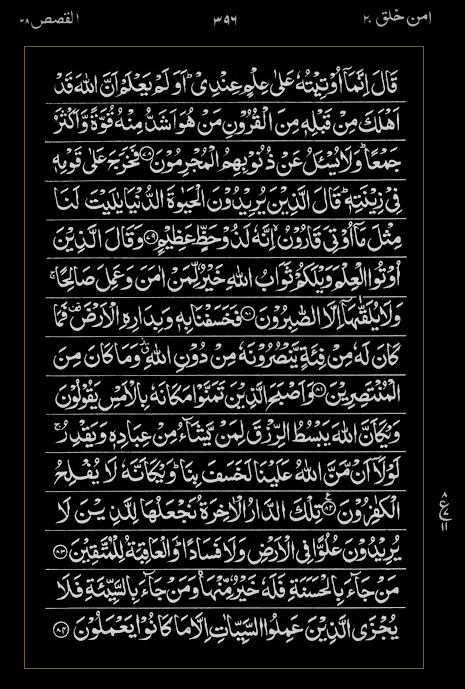 امن خلق ۲۰ ۳۹۶ القصص ۲۸
قَالَ اِنَّمَاۤ اُوْتِیْتُهٗ عَلٰی عِلْمٍ عِنْدِیْ ؕ اَوَ لَمْ یَعْلَمْ اَنَّ اللّٰهَ قَدْ
اَهْلَكَ مِنْ قَبْلِهٖ مِنَ الْقُرُوْنِ مَنْ هُوَ اَشَدُّ مِنْهُ قُوَّةً وَّ اَكْثَرُ
جَمْعًا ؕ وَ لَا یُسْـَٔلُ عَنْ ذُنُوْبِهِمُ الْمُجْرِمُوْنَ ﴿۷۸﴾ فَخَرَجَ عَلٰی قَوْمِهٖ
فِیْ زِیْنَتِهٖ ؕ قَالَ الَّذِیْنَ یُرِیْدُوْنَ الْحَیٰوةَ الدُّنْیَا یٰلَیْتَ لَنَا
مِثْلَ مَاۤ اُوْتِیَ قَارُوْنُ ۙ اِنَّهٗ لَذُوْ حَظٍّ عَظِیْمٍ ﴿۷۹﴾ وَ قَالَ الَّذِیْنَ
اُوْتُوا الْعِلْمَ وَیْلَكُمْ ثَوَابُ اللّٰهِ خَیْرٌ لِّمَنْ اٰمَنَ وَ عَمِلَ صَالِحًا ۚ
وَ لَا یُلَقّٰىهَاۤ اِلَّا الصّٰبِرُوْنَ ﴿۸۰﴾ فَخَسَفْنَا بِهٖ وَ بِدَارِهِ الْاَرْضَ ۫ فَمَا
كَانَ لَهٗ مِنْ فِئَةٍ یَّنْصُرُوْنَهٗ مِنْ دُوْنِ اللّٰهِ ۗ وَ مَا كَانَ مِنَ
الْمُنْتَصِرِیْنَ ﴿۸۱﴾ وَ اَصْبَحَ الَّذِیْنَ تَمَنَّوْا مَكَانَهٗ بِالْاَمْسِ یَقُوْلُوْنَ
وَیْكَاَنَّ اللّٰهَ یَبْسُطُ الرِّزْقَ لِمَنْ یَّشَآءُ مِنْ عِبَادِهٖ وَ یَقْدِرُ ۚ
لَوْ لَاۤ اَنْ مَّنَّ اللّٰهُ عَلَیْنَا لَخَسَفَ بِنَا ؕ وَیْكَاَنَّهٗ لَا یُفْلِحُ
الْكٰفِرُوْنَ ﴿۸۲﴾ تِلْكَ الدَّارُ الْاٰخِرَةُ نَجْعَلُهَا لِلَّذِیْنَ لَا
یُرِیْدُوْنَ عُلُوًّا فِی الْاَرْضِ وَ لَا فَسَادًا ؕ وَ الْعَاقِبَةُ لِلْمُتَّقِیْنَ ﴿۸۳﴾
مَنْ جَآءَ بِالْحَسَنَةِ فَلَهٗ خَیْرٌ مِّنْهَا ۚ وَ مَنْ جَآءَ بِالسَّیِّئَةِ فَلَا
یُجْزَی الَّذِیْنَ عَمِلُوا السَّیِّاٰتِ اِلَّا مَا كَانُوْا یَعْمَلُوْنَ ﴿۸۴﴾
۸
ع
۱۱